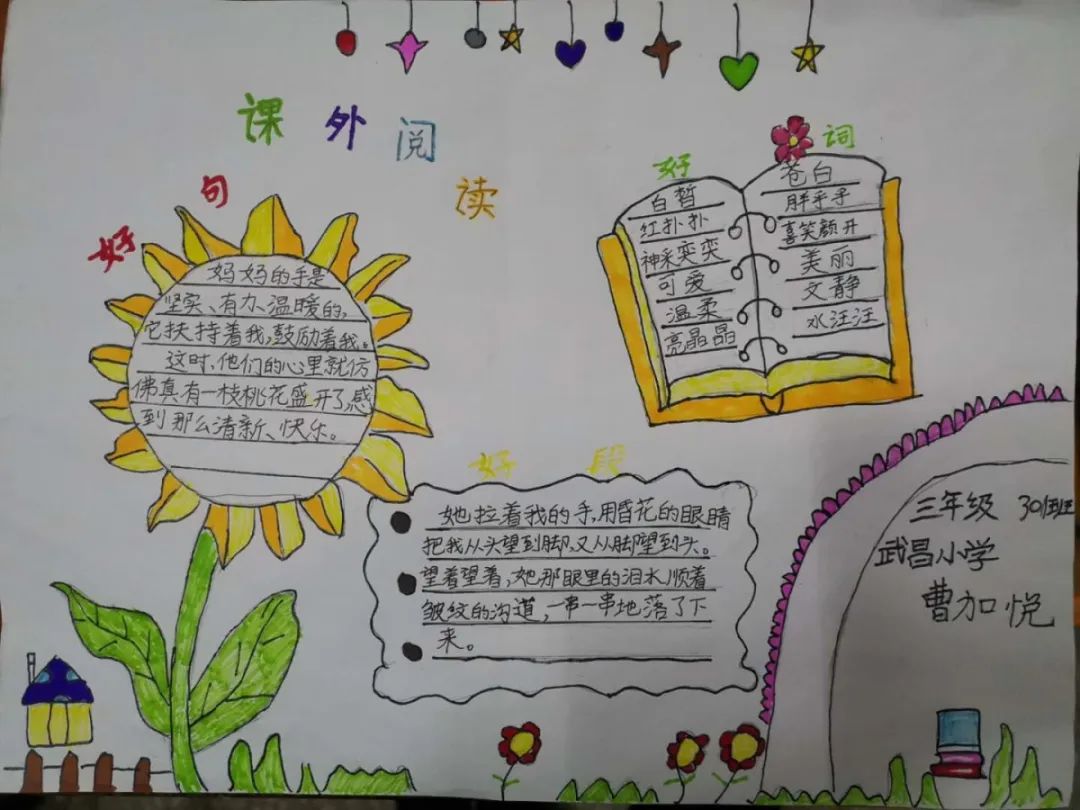 课外阅读
好句
妈妈的手是
坚实、有力、温暖的,
它扶持着我,鼓励着我。
这时,他们的心里就仿
佛真有一枝桃花盛开了,感
到那么清新、快乐。
好词
白皙
红扑扑
神采奕奕
可爱
温柔
亮晶晶
苍白
胖乎乎
喜笑颜开
美丽
文静
水汪汪
好段
她拉着我的手,用昏花的眼睛
把我从头望到脚,又从脚望到头。
望着望着,她那眼里的泪水,顺着
皱纹的沟道,一串一串地落了下
来。
三年级 301班
武昌小学
曹加悦